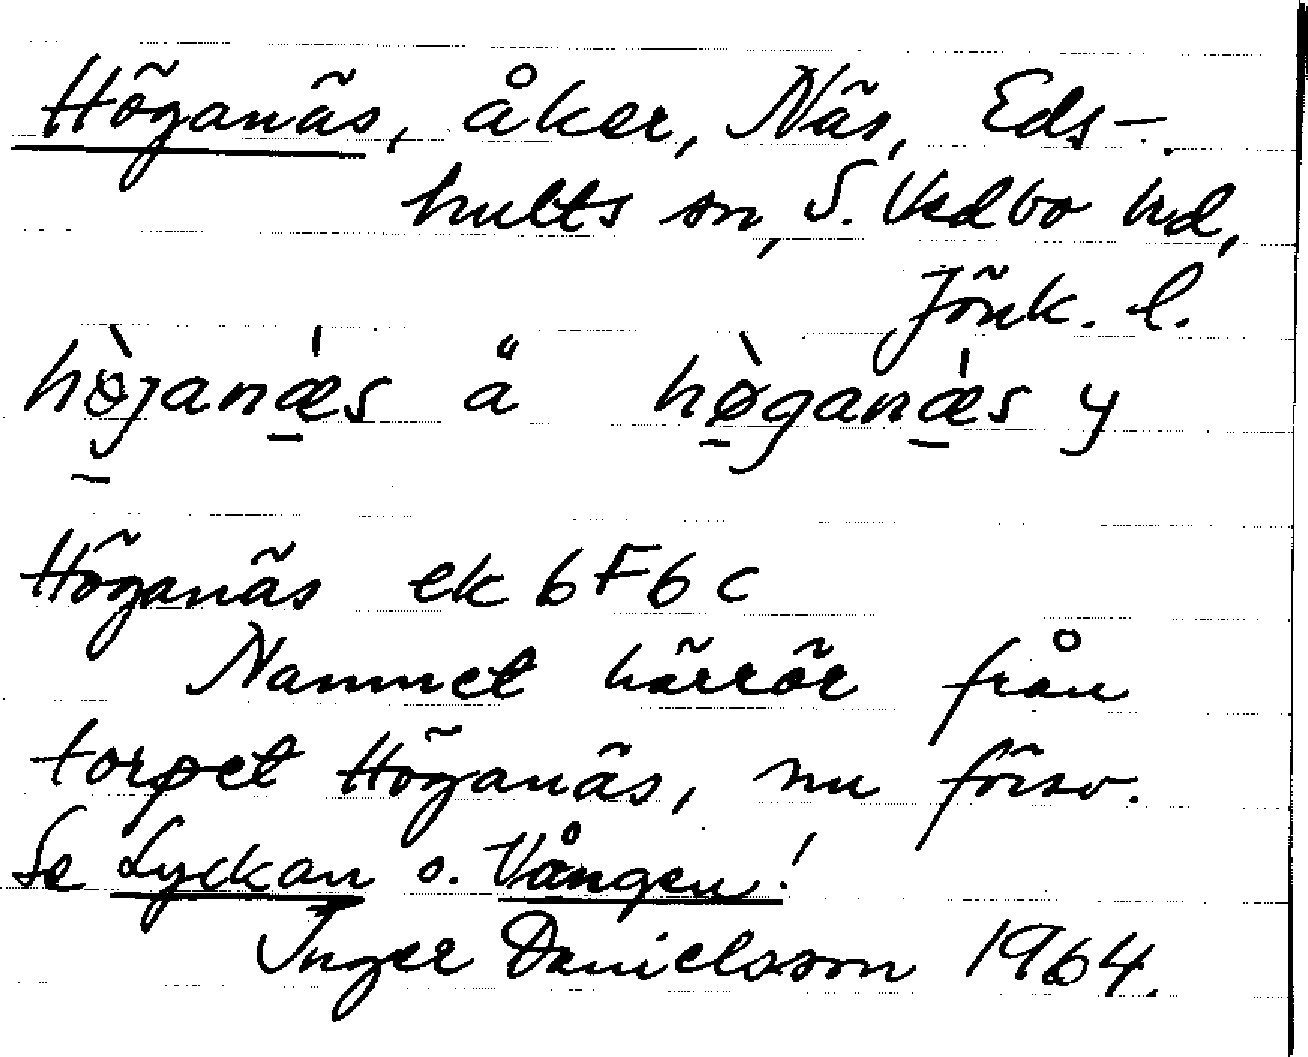 Höganäs, åker, Näs, Eds-
hults sn, S. Vedbo hd,
Jönk. l.
hø̀janǽs ä hø̀ganǽs y
Höganäs ek 6F6c
Namnet härrör från
torpet Höganäs, nu försv.
Se Lyckan o. Vången!
Inger Danielsson 1964.